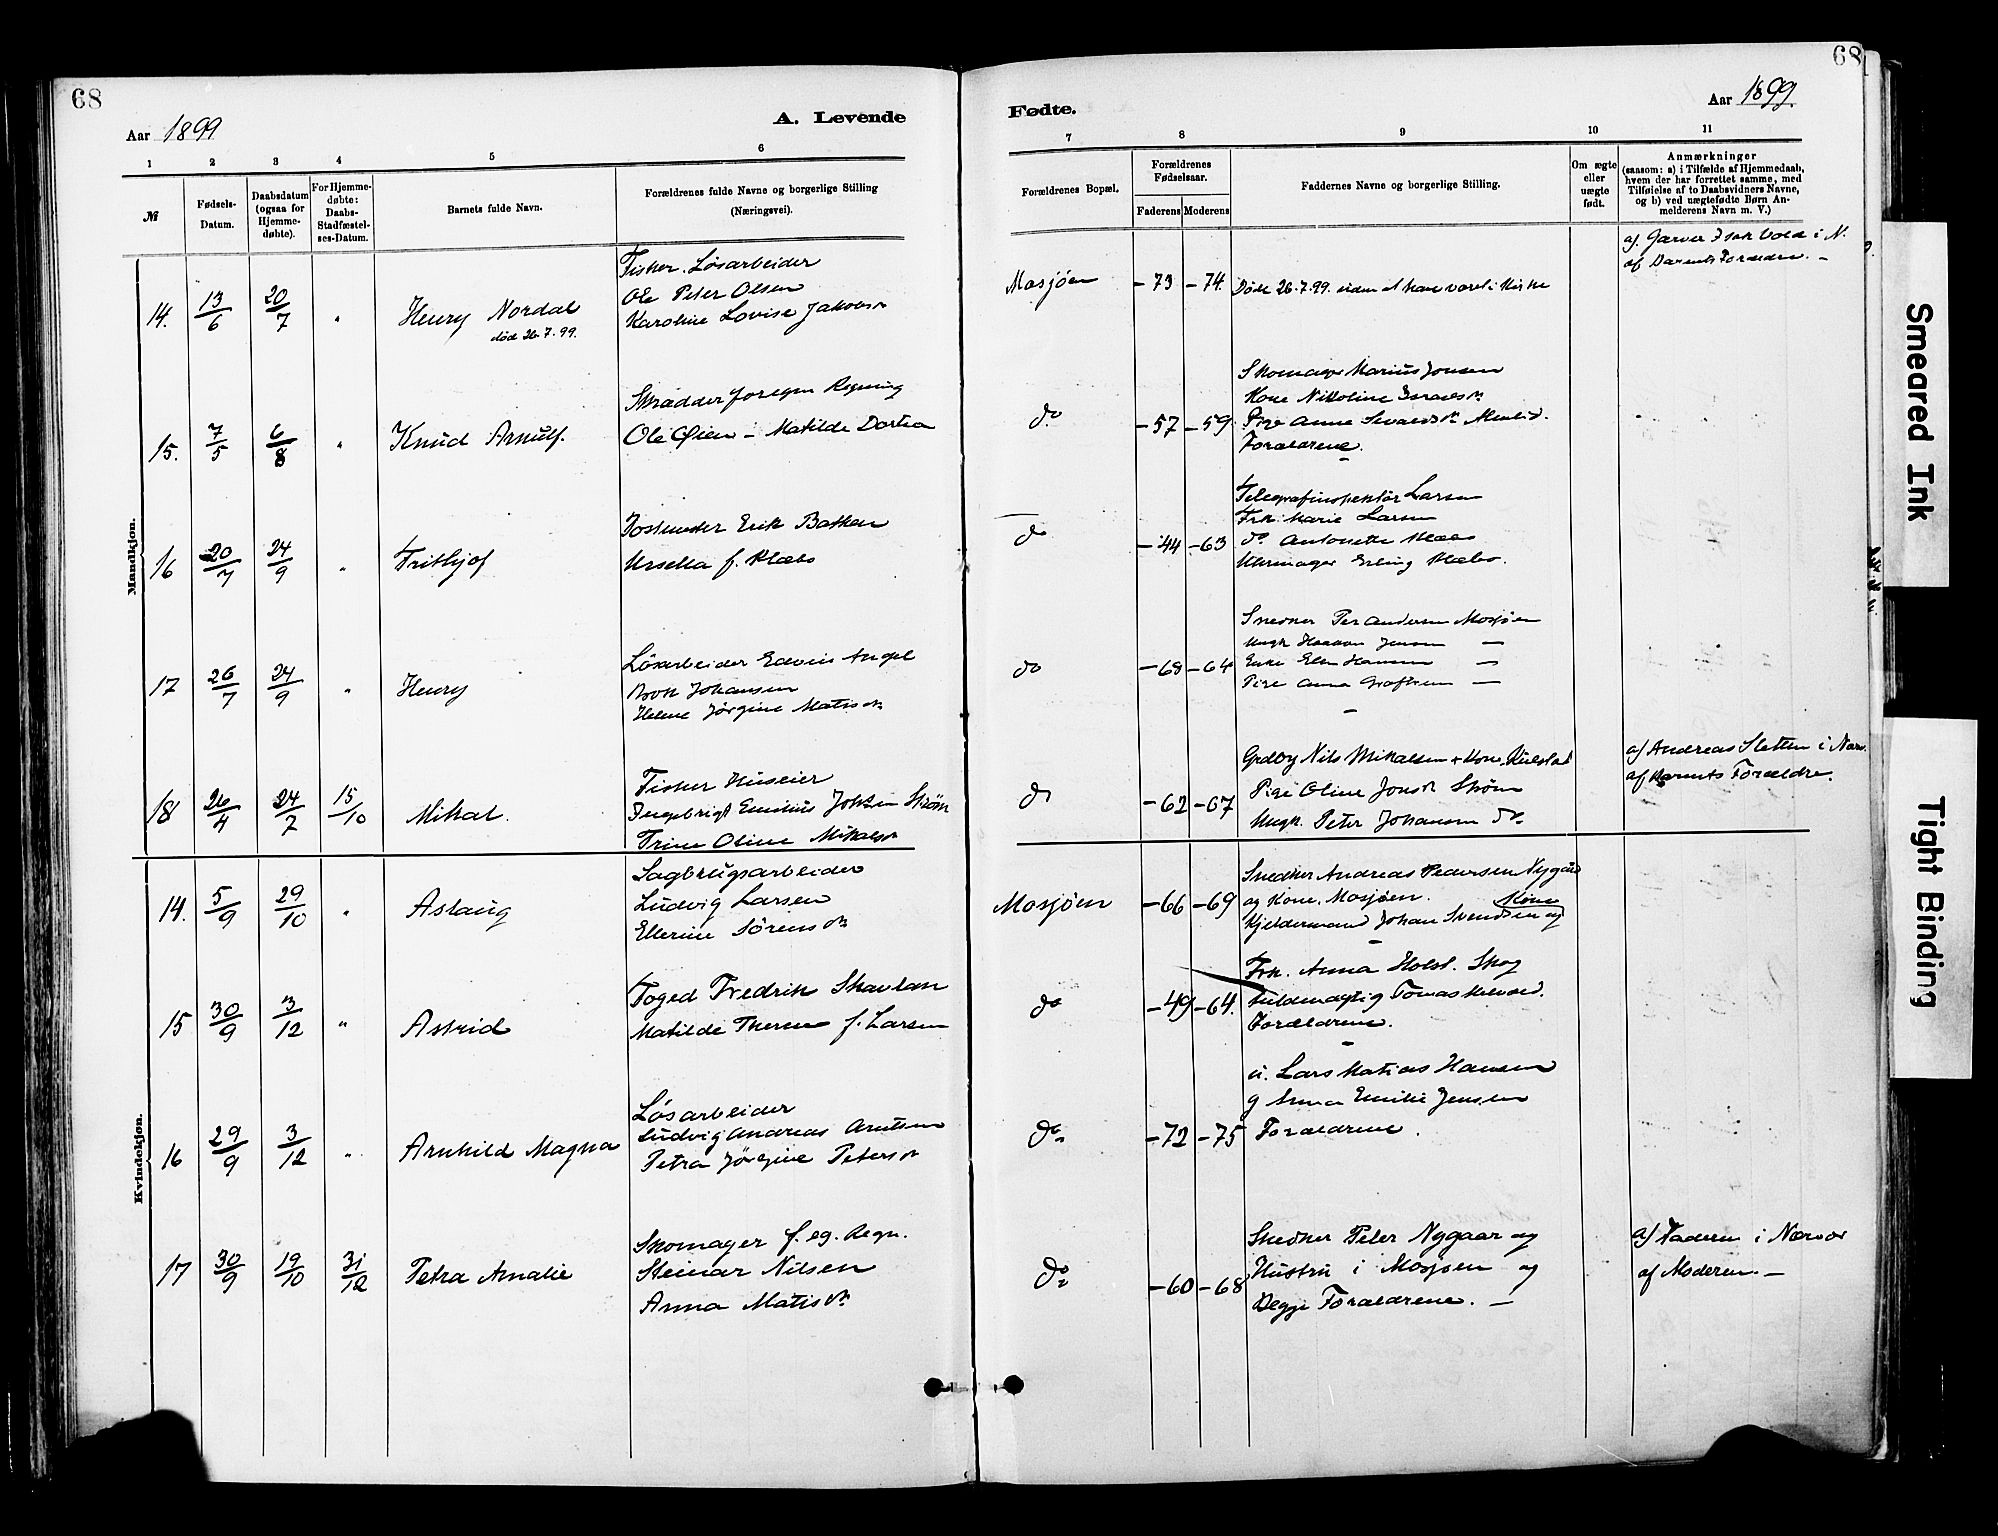 68
68
Aar 1899
A. Levende
Fødte.
Aar 1899.
1 2 3 4 5 6 7 8 9 10 11
№
Fødsels-
Datum.
Daabsdatum
(ogsaa for
Hjemme-
døbte).
For Hjemme-
døbte:
Daabs-
Stadfæstel-
ses-Datum.
Barnets fulde Navn.
Forældrenes fulde Navne og borgerlige Stilling
(Næringsvei).
Forældrenes Bopæl.
Forældrenes
Fødselsaar.
Faderens Moderens
Faddernes Navne og borgerlige Stilling.
Om ægte
eller
uægte
født.
Anmærkninger
(saasom: a) i Tilfælde af Hjemmedaab,
hvem der har forrettet samme, med
Tilføielse af to Daabsvidners Navne,
og b) ved uægtefødte Børn An-
melderens Navn m. V.)
Mandkjøn.
14. 13/6 20/7 " Henry Nordal
død 26.7.99.
Fisker. Løsarbeider
Ole Peter Olsen
Karoline Lovise Jakobsdr
Mosjøen -73 -74.
Døde 26.7.99. uden at have været i Kirke
af Garver Isak Vold i N.
af Barnets Forældre. -
15. 7/5 6/8 " Knud Arnulf.
Skrædder for egen Regning
Ole Øien - Matilde Dortea
do -57 -59.
Skomager Marius Jonsen
Kone Nikoline
Pige Anne
Forældrene.
16 20/7 24/9 " Frithjof
Erik Bakken
f. Klæbo
do -44 -63
Telegrafinspektør Larsen
Frk. Marie Larsen
do Antonette Klæbo
Uhrmager Erling Klæbo.
17 26/7 24/9 " Henry
Løsarbeider Edvin Angel
Johansen
Helene Jørgine Matisdr
do -68 -64
Snedker Per Andersen Mosjøen
Ungk Haakon Jensen -
Enke Elen Hansen -
Pige Anna -
18 26/4 24/7 15/10 Mikal.
Fisker Huseier
Ingebrigt Johsen Strøm
Trine Oline Mikalsdr
do -62 -67
Nils Mikalsen + Kone, Kulstad
Pige Oline Jonsdr Strøm
Ungk. Peter Johansen do.
a) Andreas Sletten i Nærv.
af Barnets Forældre.
Kvindekjøn.
14. 5/9 29/10 " Aslaug
Sagbrugsarbeider
Ludvig Larsen
Ellerine Sørensdr
Mosjøen -66 -69
Snedker Andreas Pedersen Nygård
og Kone, Mosjøen.
Kjeldermand Johan Svendsen og Kone
15 30/9 3/12 " Astrid
Foged Fredrik Skavlan
Matilde Therese f. Larsen
do -49 -64.
Frk. Anna Holst. Skog
Fuldmægtig Tomas
Forældrene.
16 29/9 3/12 " Arnhild Magna
Løsarbeider
Ludvig Andreas Arntsen
Petra Jørgine Petersdr
do -72 -75
u. Lars Matias Hansen
g Anna Emilie Jensen
Forældrene.
17 30/9 19/10 31/12 Petra Amalie
Skomager f. eg. Regn.
Steinar Nilsen
Anna Matisdr
do -60 -68
Snedker Peter Nygaar og
Hustru i Mosjøen og
Begge Forældrene. -
a) Faderen i Nærvær
af Moderen. -
Smeared Ink
Tight Binding